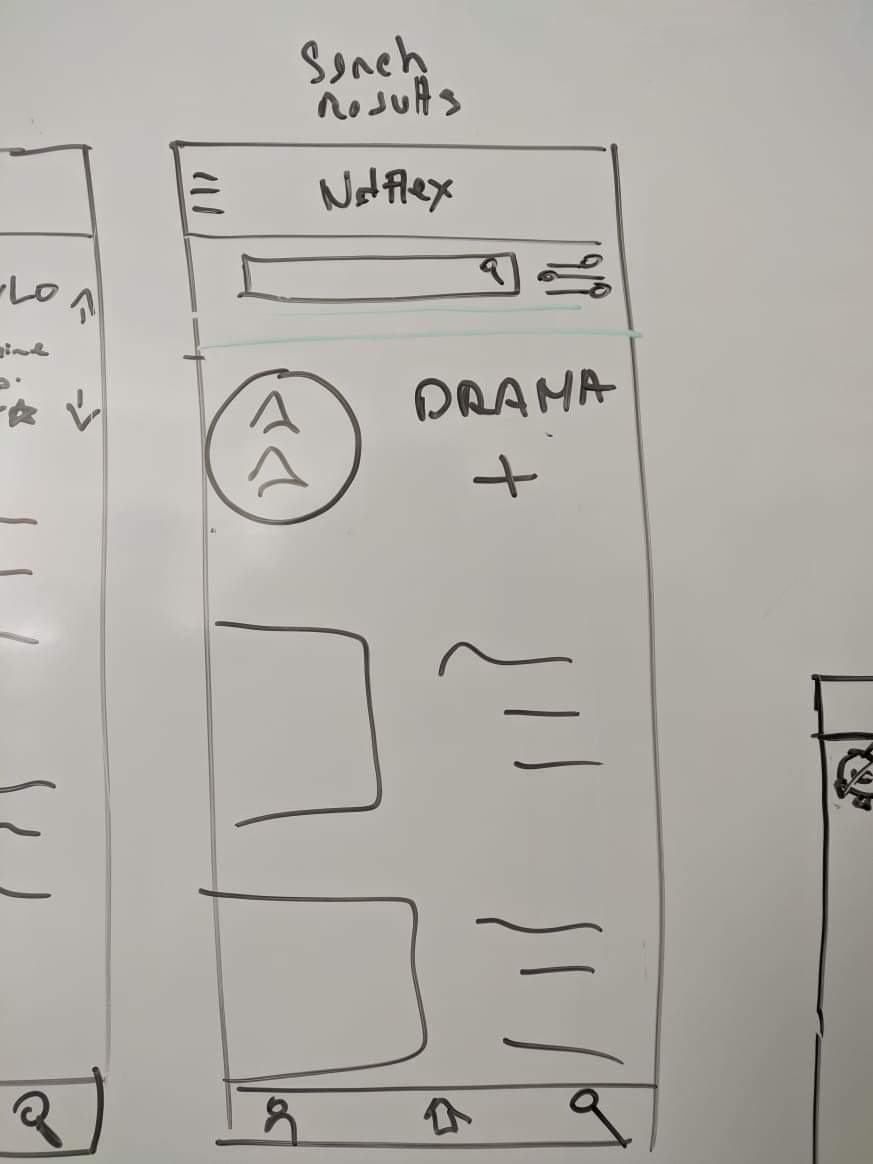 Serch
results
Netflex
DRAMA
+
LO